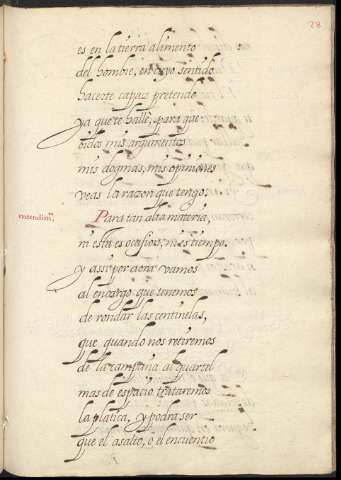 28
es en la tierra alimento
del hombre, en cuyo sentido
hacerte capaz pretendo
ya que te hallè, para que
oidos mis argumentos
mis dogmas, mis opiniones
veas la razon que tengo.
entendim.to Para tan alta materia,
ni esta es ocasion, ni es tiempo.
y assi por aora vamos
al encargo que tenemos
de rondar las centinelas,
que quando nos retiremos
de la campaña al quartel
mas de espacio trataremos
la platica, y podra ser
que el asalto, o el encuentro